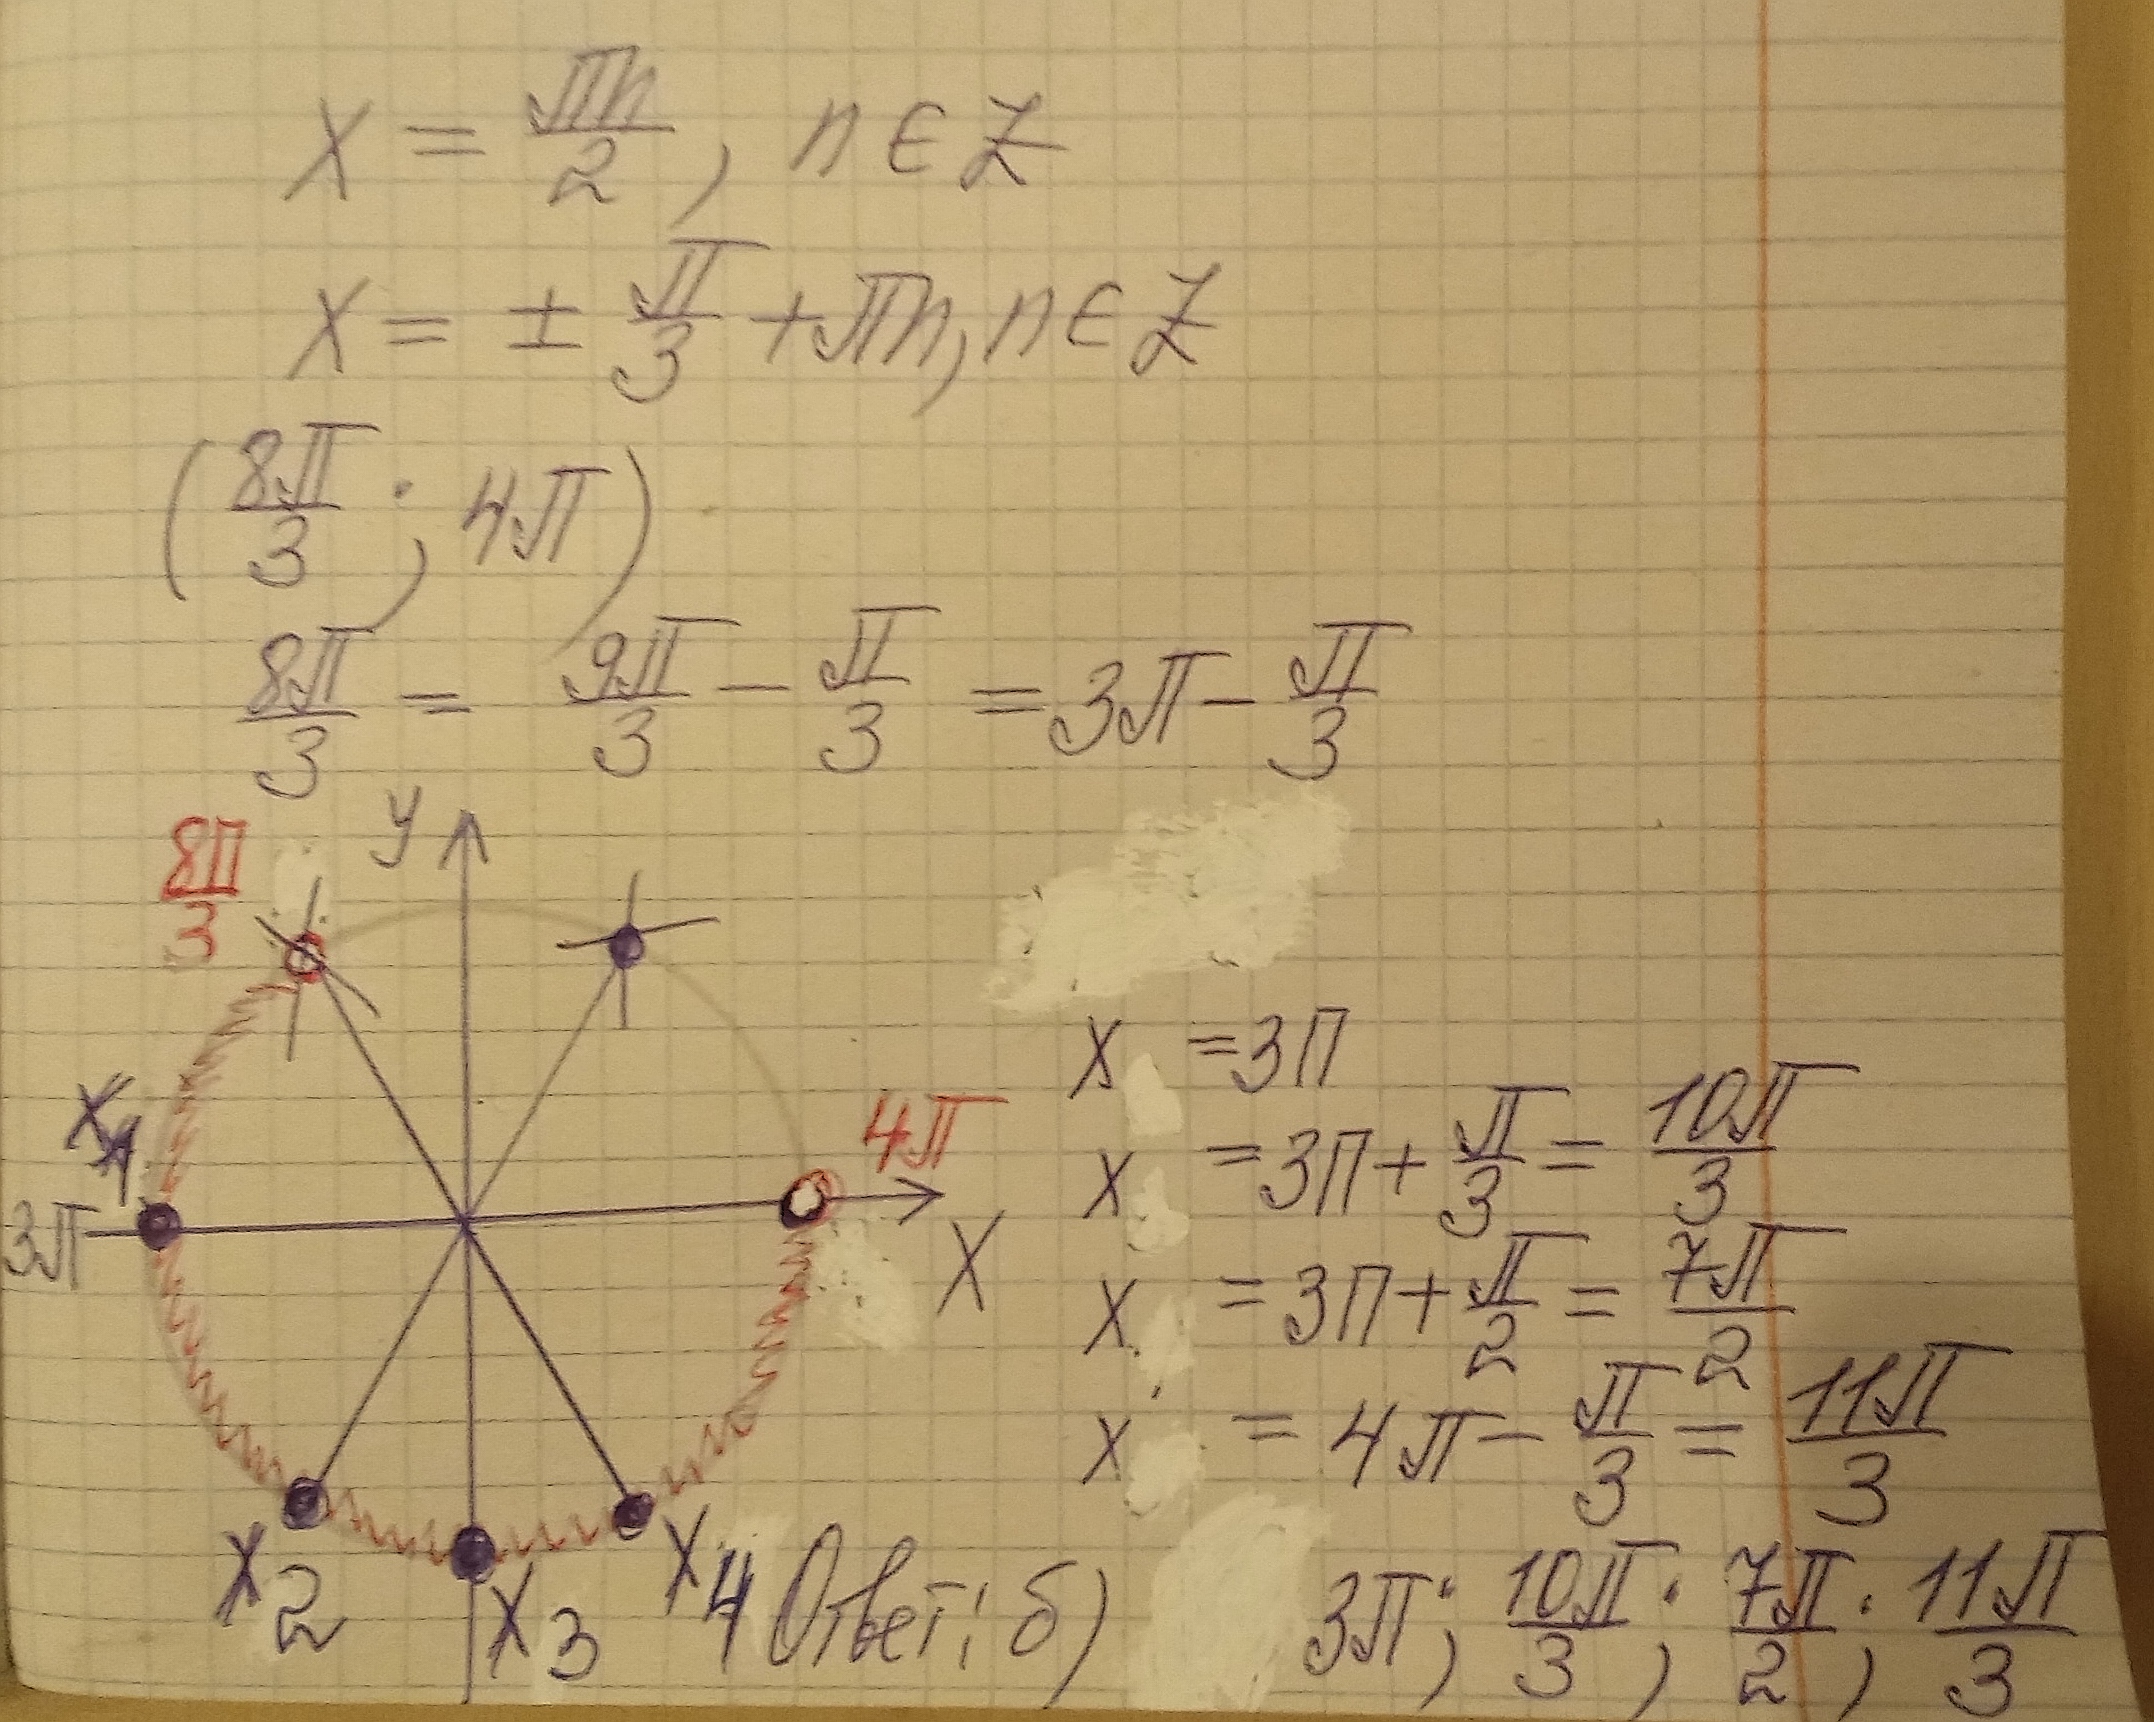 x = πn/2, n ∈ Z
x = ± π/3 + πn, n ∈ Z
(8π/3; 4π)
8π/3 = 9π/3 − π/3 = 3π − π/3
y
8π/3
x1
3π
4π
x
x2
x3
x4
x = 3π
x = 3π + π/3 = 10π/3
x = 3π + π/2 = 7π/2
x = 4π − π/3 = 11π/3
Ответ: б) 3π; 10π/3; 7π/2; 11π/3